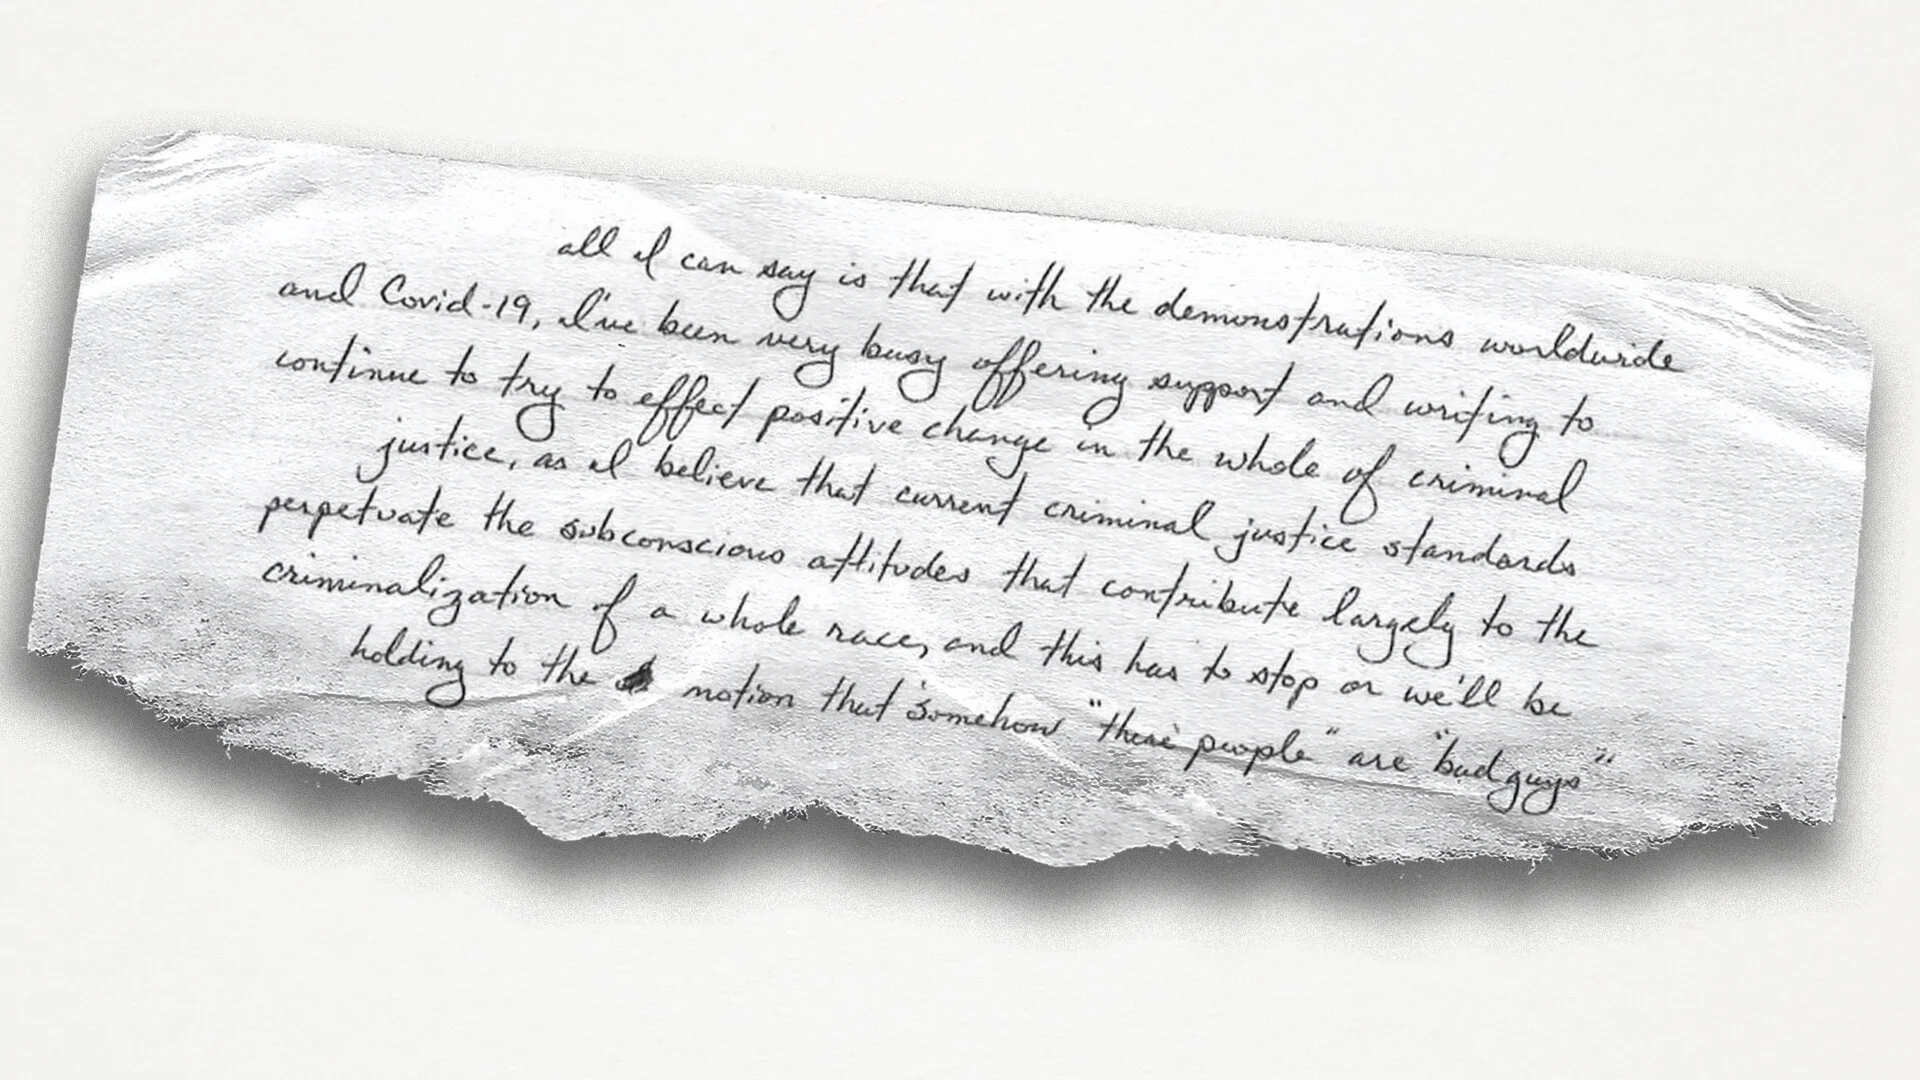 all I can say is that with the demonstrations worldwide
and Covid-19, I've been very busy offering support and writing to
continue to try to effect positive change in the whole of criminal
justice, as I believe that current criminal justice standards
perpetuate the subconscious attitudes that contribute largely to the
criminalization of a whole race, and this has to stop or we'll be
holding to the notion that somehow "these people" are "bad guys"